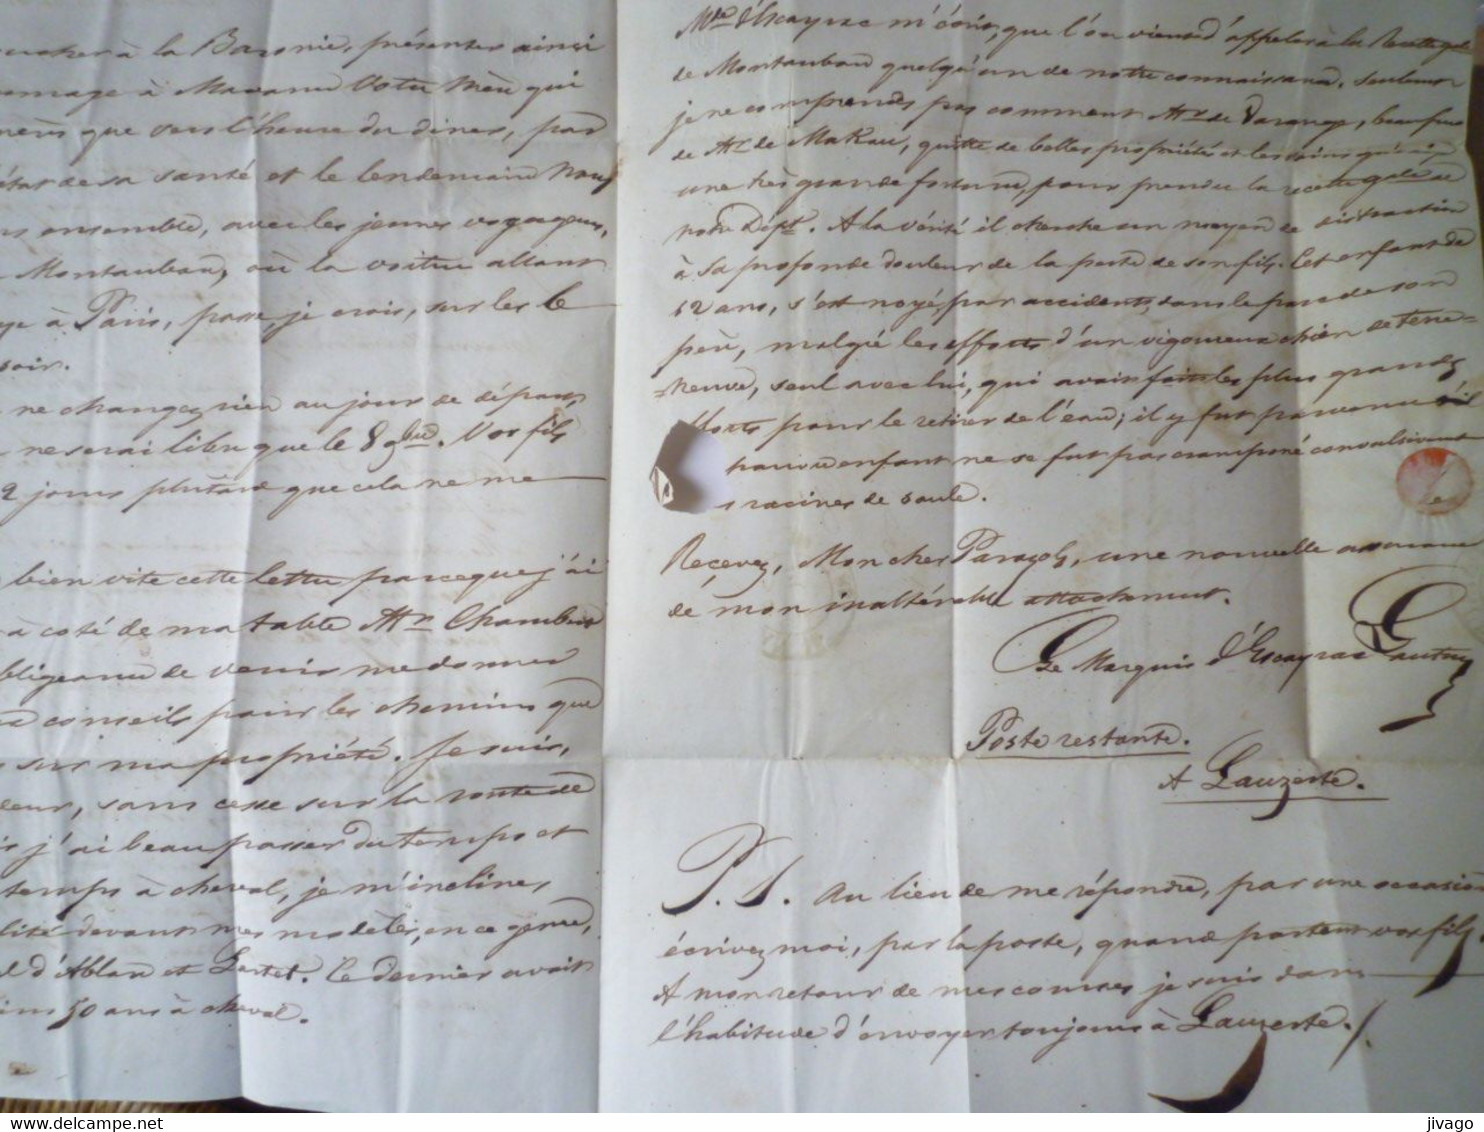 coucher à la Baronie, présenter ainsi
hommage à Madame Votre Mère qui
que vers l'heure du diner, par
état de sa santé et le lendemain nous
ensemble, avec les jeunes voyageurs,
Montauban, où la voiture allant
à Paris, passe, je crois, sur les 6 h
soir.
ne changez rien au jour de départ
ne serai libre que le 8 9bre. Vos fils
2 jours plutard que cela ne me
bien vite cette lettre parceque j'ai
à coté de ma table Mr. Chambert
obligeance de venir me donner
conseils pour les chemins que
sur ma propriété. Je suis,
sans cesse sur la route de
j'ai beau passer du temps et
temps à cheval, je m'incline
devant mes modèles, en ce genre,
d'Ablan et Lartet. Ce dernier avait
50 ans à cheval.
Mde d'Escayrac m'écrit, que l'on vient d'appeler à la Recette gale
de Montauban quelqu'un de notre connaissance. Seulement
je ne comprends pas comment Mr. de Varange, beau fils
de Mr. de Makau, quitte de belles propriétés et les soins qu'exige
une très grande fortune, pour prendre la recette gale de
notre Dépt. A la vérité il cherche un moyen de distraction
à sa profonde douleur de la perte de son fils. Cet enfant de
12 ans, s'est noyé, par accident, dans le parc de son
père, malgré les efforts d'un vigoureux chien de terre-
neuve, seul avec lui, qui avait fait les plus grands
efforts pour le retirer de l'eau; il y fut parvenu si
pauvre enfant ne se fut pas cramponé convulsivement
racines de saule.
Recevez, Mon cher Parazols, une nouvelle assurance
de mon inaltérable attachement.
Le Marquis d'Escayrac Lauture
Poste restante.
A Lauzerte.
P.S. Au lieu de me répondre, par une occasion
écrivez moi, par la poste, quand partent vos fils.
A mon retour de mes courses je suis dans
l'habitude d'envoyer toujours à Lauzerte./.
jivago